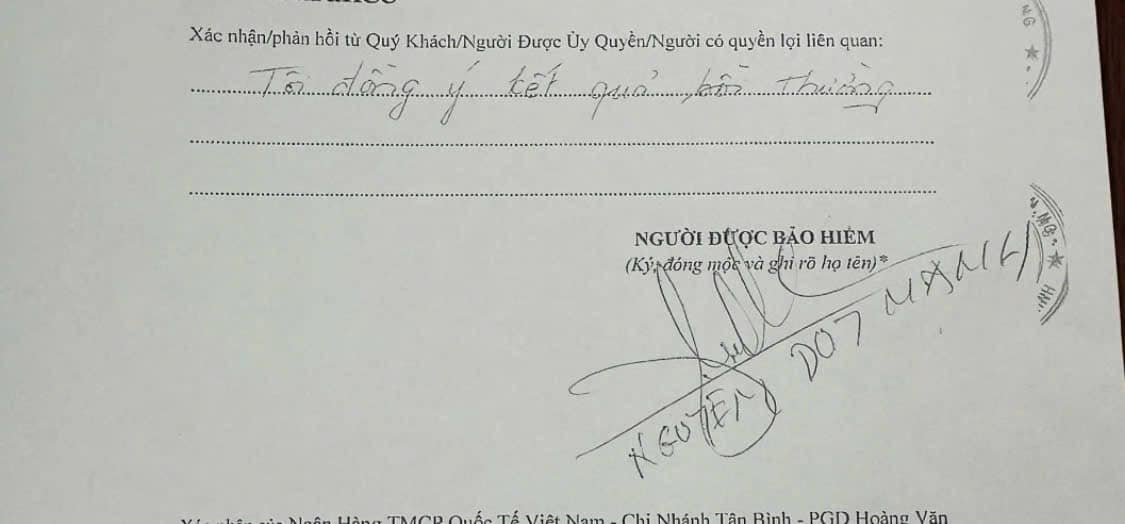 Xác nhận/phản hồi từ Quý Khách/Người Được Ủy Quyền/Người có quyền lợi liên quan:
Tôi đồng ý kết quả bồi thường
NGƯỜI ĐƯỢC BẢO HIỂM
(Ký, đóng mộc và ghi rõ họ tên)*
NGUYỄN DOT MẠNH
Ngân Hàng TMCP Quốc Tế Việt Nam - Chi Nhánh Tân Bình - PGD Hoàng Văn